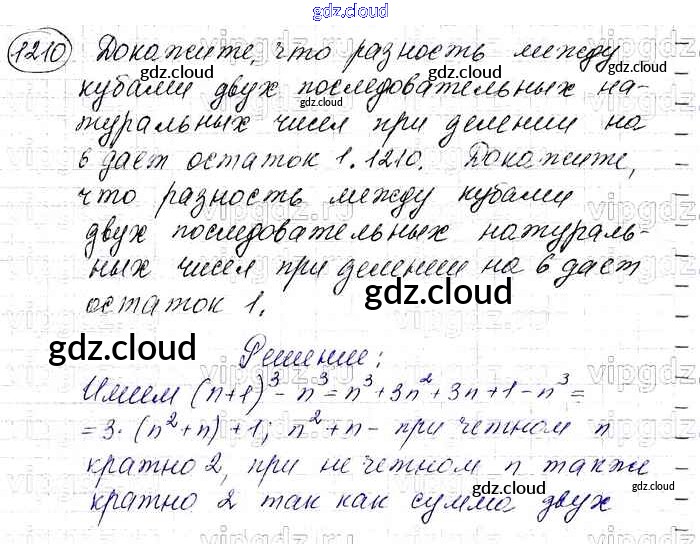 gdz.cloud
1210 Докажите, что разность между
кубами двух последовательных на-
туральных чисел при делении на
6 дает остаток 1. 1210. Докажите,
что разность между кубами
двух последовательных натураль-
ных чисел при делении на 6 дает
остаток 1.
gdz.cloud
gdz.cloud
Решение:
Имеем (n+1)³ - n³ = n³ + 3n² + 3n + 1 - n³ =
= 3 · (n² + n) + 1; n² + n - при четном n
кратно 2, при нечетном n также
кратно 2 так как сумма двух